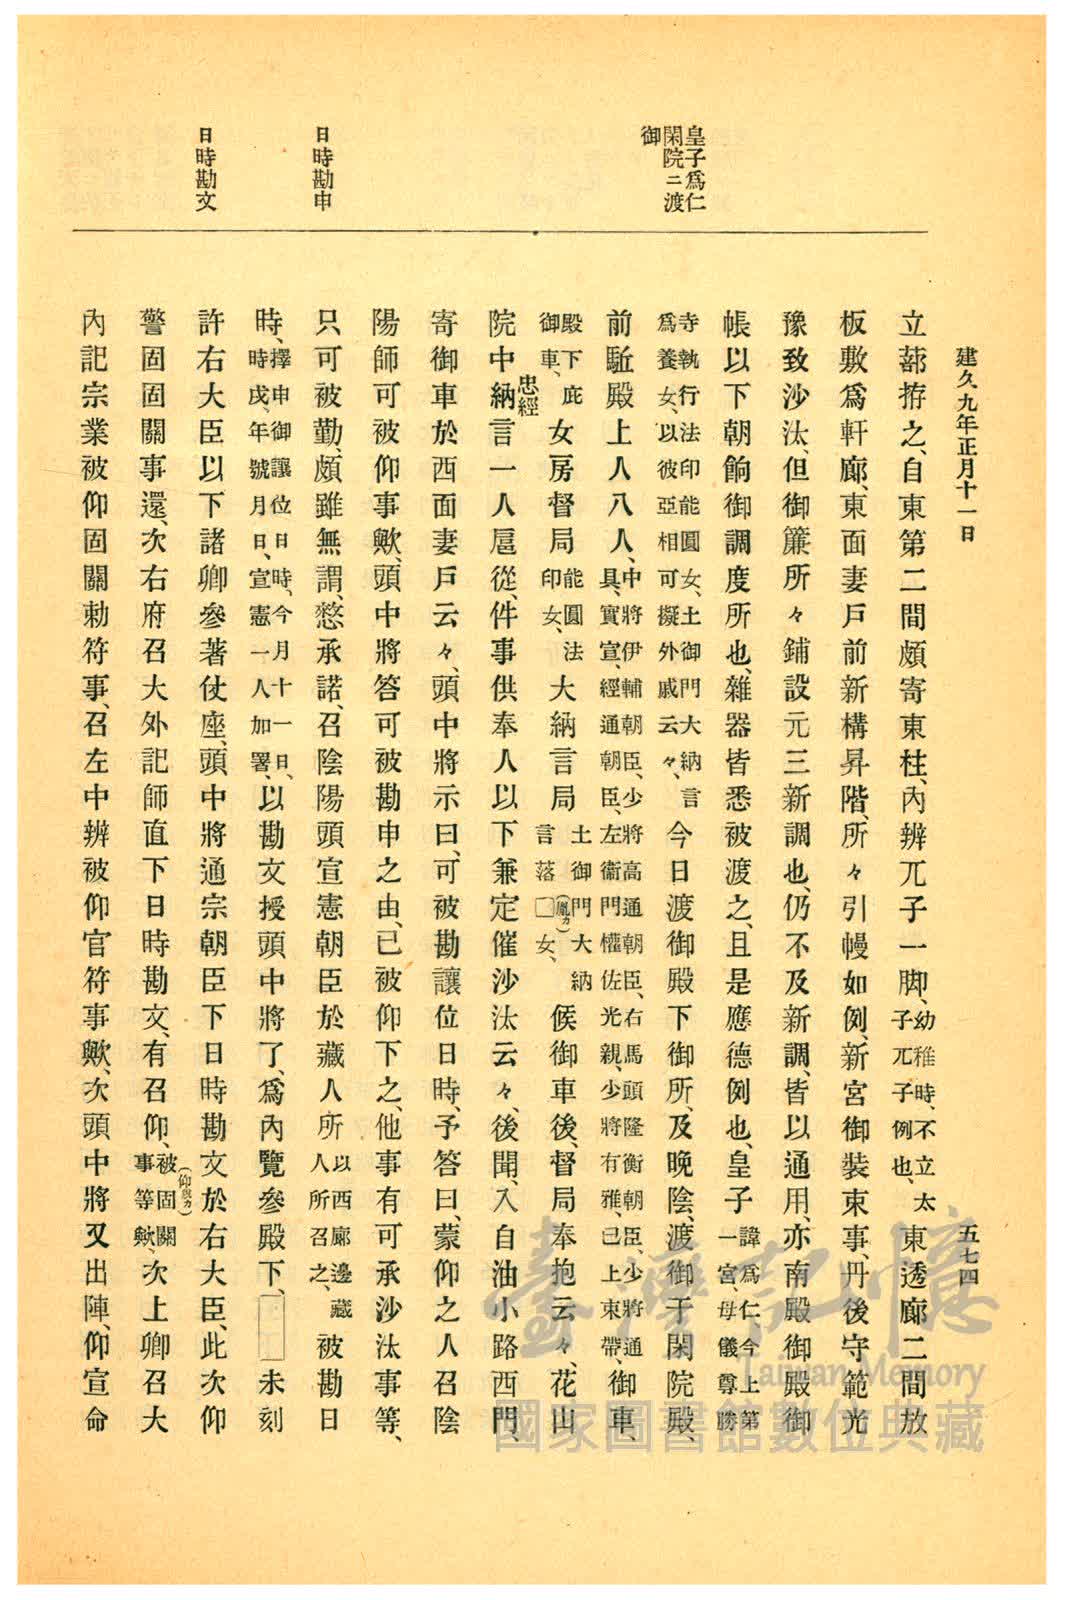 建久九年正月十一日
五七四
皇子爲仁
閑院ニ渡
御
日時勘申
日時勘文
立蔀拵之、自東第二間頗寄東柱、內辨兀子一脚、幼稚時、不立太子兀子例也、東透廊二間放
板敷爲軒廊、東面妻戶前新構昇階、所々引幔如例、新宮御裝束事、丹後守範光
豫致沙汰、但御簾所々鋪設元三新調也、仍不及新調、皆以通用、亦南殿御殿御
帳以下朝餉御調度所也、雜器皆悉被渡之、且是應德例也、皇子諱爲仁、今上第一宮、母儀尊勝
寺執行法印能圓女、土御門大納言爲養女、以彼亞相可擬外戚云々、今日渡御殿下御所、及晚陰、渡御于閑院殿、
前駈殿上人八人、中將伊輔朝臣、少將高通朝臣、右馬頭隆衡朝臣、少將通具、實宣、經通朝臣、左衞門權佐光親、少將有雅、已上束帶、御車、
殿下庇御車、女房督局能圓法印女、大納言局土御門大納言落□(胤カ)女、候御車後、督局奉抱云々、花山
院中納言忠經一人扈從、件事供奉人以下兼定催沙汰云々、後聞、入自油小路西門、
寄御車於西面妻戶云々、頭中將示曰、可被勘讓位日時、予答曰、蒙仰之人召陰
陽師可被仰事歟、頭中將答可被勘申之由、已被仰下之、他事有可承沙汰事等、
只可被勤、頗雖無謂、憖承諾、召陰陽頭宣憲朝臣於藏人所以西廊邊藏人所召之、被勘日
時、擇申御讓位日時、今月十一日、時戌、年號月日、宣憲一人加署、以勘文授頭中將了、爲內覽參殿下、未刻
許右大臣以下諸卿參著仗座、頭中將通宗朝臣下日時勘文於右大臣、此次仰
警固固關事還、次右府召大外記師直下日時勘文、有召仰、被(仰與カ)固關事等歟、次上卿召大
內記宗業被仰固關勅符事、召左中辨被仰官符事歟、次頭中將又出陣、仰宣命
臺灣記憶
Taiwan Memory
國家圖書館數位典藏